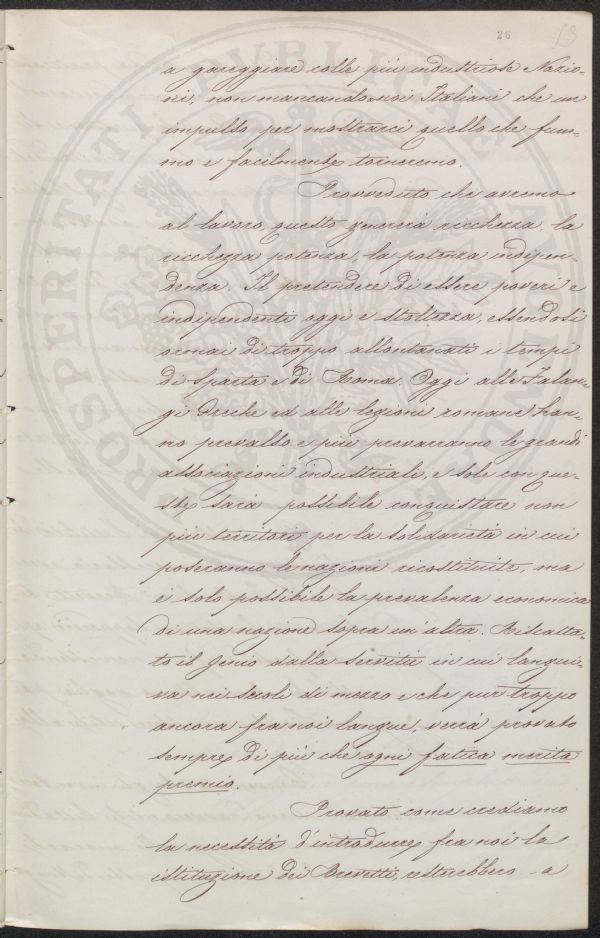 26
13
a gareggiare colle più industriose Nazio-
ni, non mancando a noi Italiani che un
impulso per mostrarci quello che fum-
mo e facilmente torneremo.
Provveduto che avremo
al lavoro, questo genererà ricchezza, la
ricchezza potenza, la potenza indipen-
denza. Il pretendere di essere poveri e
indipendenti oggi è stoltezza, essendosi
ormai di troppo allontanati i tempi
di Sparta e di Roma. Oggi alle Falan-
gi Greche ed alle legioni romane han-
no prevalso e più prevarranno le grandi
associazioni industriali, e sole con que-
ste sarà possibile conquistare non
più territori per la solidarietà in cui
poseranno le nazioni ricostituite, ma
è solo possibile la prevalenza economica
di una nazione sopra un'altra. Riscatta-
to il genio dalla servitù in cui langui-
va nei secoli di mezzo e che pur troppo
ancora fra noi langue, verrà provato
sempre di più che ogni fatica merita
premio.
Provato come crediamo
la necessità d'introdurre fra noi la
istituzione dei Brevetti, resterebbero a
PROSPERITATI PVBLICAE